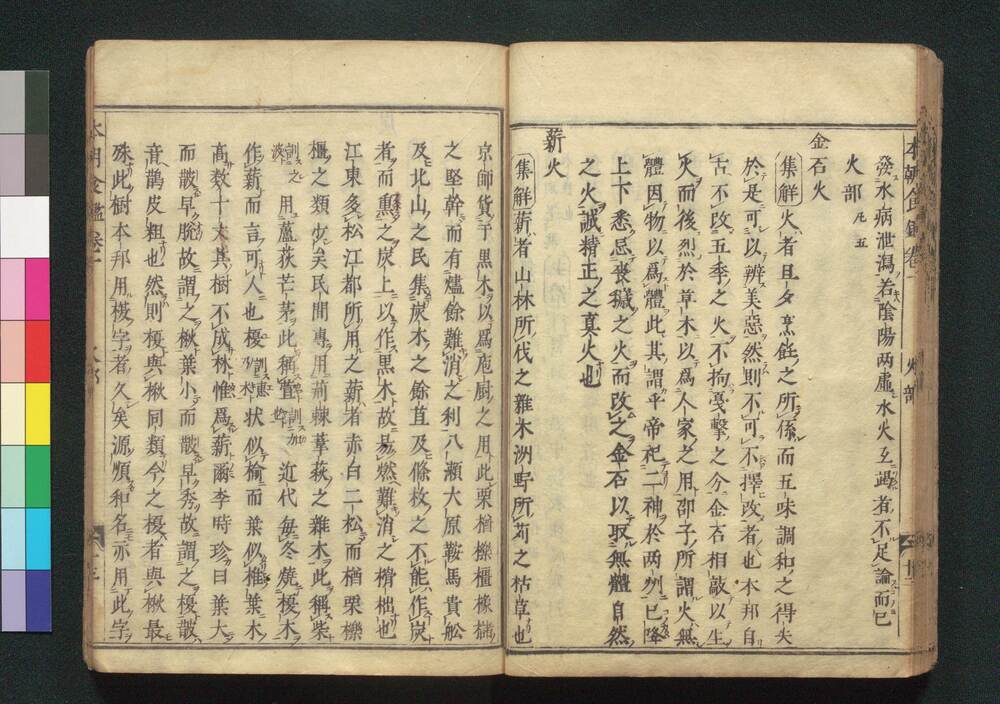 發水病泄瀉若陰陽兩虛水火乏竭者不足論而已
火部 凡五
金石火
集解火者旦夕烹飪之所係而五味調和之得失
於是可以辨美惡然則不可不擇改者也本邦自
古不改五季之火不拘戞擊之今金石相敲以生
火而後烈於草木以爲人家之用邵子所謂火無
體因物以爲體此其謂乎帝祀二神於兩州已降
上下悉忌喪穢之火而改之金石以取無體自然
之火誠精正之眞火也
薪火
集解薪者山林所伐之雜木洲野所苅之枯草也
京師貨于黒木以爲庖厨之用此栗楢櫟橿櫲櫧
之堅幹而有燼餘難消之利八瀬大原鞍馬貴舩
及北山之民集炭木之餘苴及條枚之不能作炭
者而熏之炭上以作黒木故易燃難消之榾柮也
江東多松江都所用之薪者赤白二松而楢栗櫟
橿之類少矣民間專用荊棘萑萩之雜木此稱柴
訓之波 用蘆荻芒茅此稱苴 近代毎冬燒榎木
作薪而言可人也榎 状似楡而葉似椎葉木
高数十丈其樹不成林惟爲薪爾李時珍曰葉大
而散早脱故謂之楸葉小而散早秀故謂之榎散
音鵲皮粗也然則榎與楸同類今之榎者與楸最
殊此樹本邦用榎字者久矣源順和名亦用此字